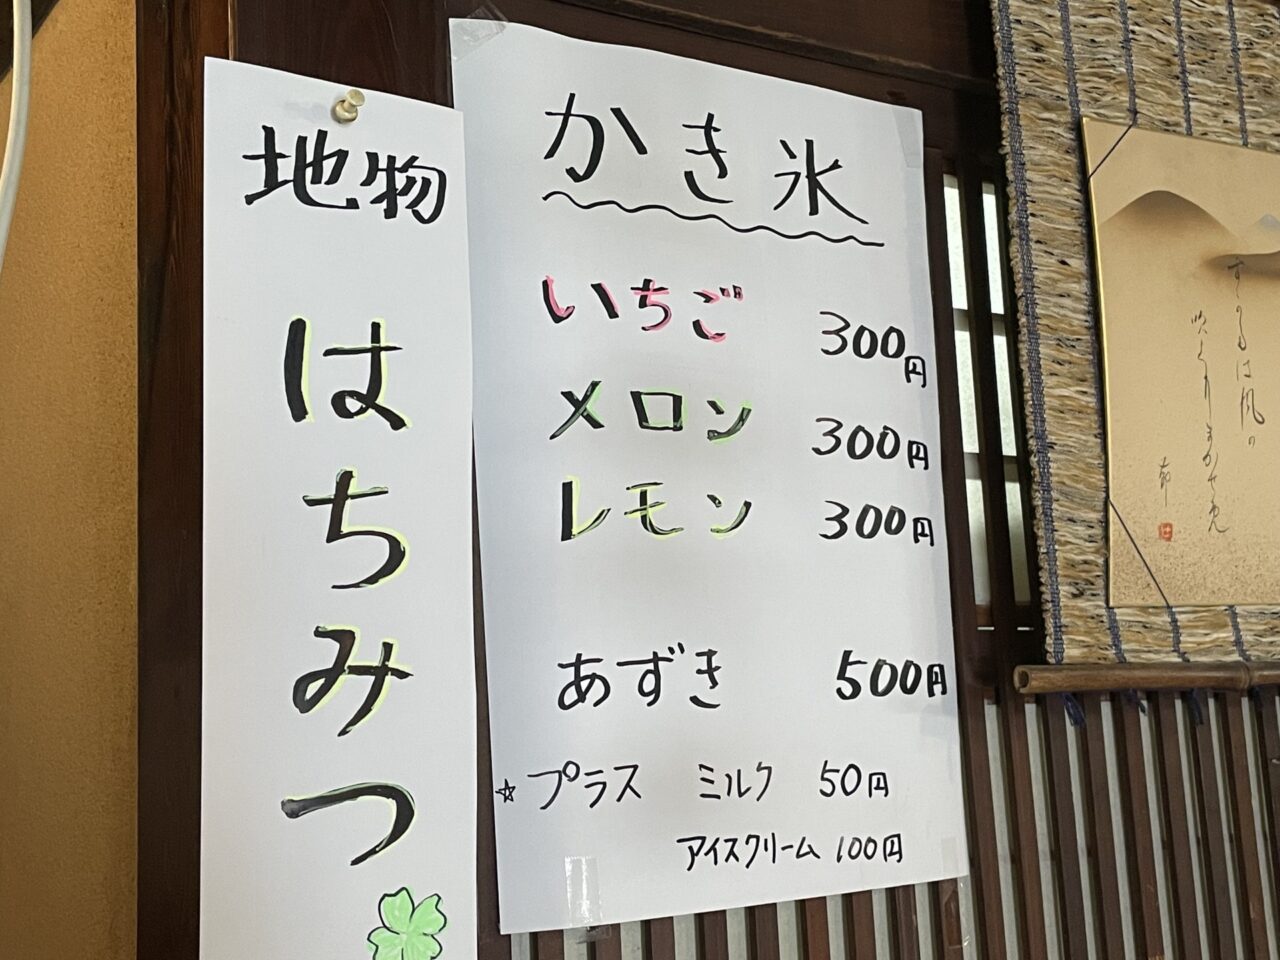 かき氷
いちご 300円
メロン 300円
レモン 300円
あずき 500円
☆プラス ミルク 50円
アイスクリーム 100円
地物
はちみつ